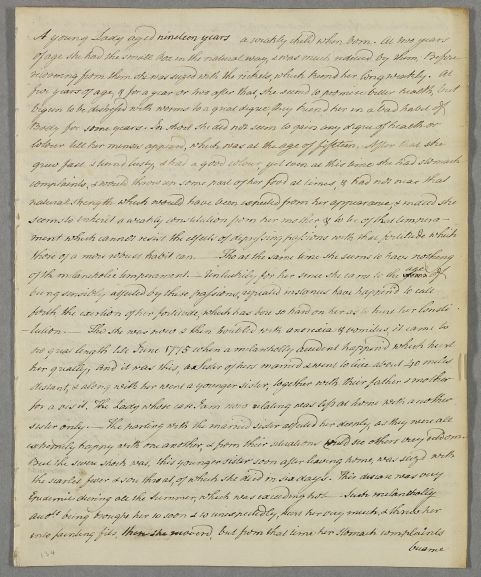 A young Lady aged nineteen years a weakly child when born. At two years
of age she had the small Pox in the natural way, & was much reduced by them, Before
recovering from them she was seized with the rickets, which kept her long weakly. At
five years of age, & for a year or two after that, she seemed to promise better health, but
begun to be distressed with worms to a great degree, they kept her in a bad habit of
Body for some years. In short she did not seem to gain any degree of health or
colour till her menses appeared, which was at the age of fifteen. After that she
grew fast & turned lusty, & had a good colour, yet even at this time she had stomach
complaints, & would throw up some part of her food at times, & had not near that
natural strength which would have been expected from her appearance, & indeed she
seems to inherit a weakly constitution from her mother & to be of that tempera-
ment which cannot resist the effects of depressing passions with that fortitude which
those of a more robust habit can. — Tho at the same time she seems to have nothing
of the melancholic temperament. — Unluckily for her since she came to the age of
being sensibly affected by these passions, repeated instances have happened to call
forth the exertion of her fortitude, which has bore so hard on her as to hurt her consti-
-tution. — Tho she was now & then troubled with anorexia & vomitus, it came to
no great length till June 1775 when a melancholly accident happened which hurt
her greatly, And it was this, a sister of hers married & went to live about 40 miles
distant, & along with her went a younger sister, together with their father & mother
for a visit. The Lady whose case I am now relating was left at home with another
sister only. — The parting with the married sister affected her deeply, as they were all
extremely happy with one another, & from their situations could see others very seldom.
But the severe shock was, this younger sister soon after leaving home, was seized with
the scarlet fever & sore throat, of which she died in six days. This disease was very
Epidemic during all the Summer, which was exceeding hot — Such melancholly
accts being brought her so soon & so unexpectedly, hurt her very much, & threw her
into fainting fits, then she recovered, but from that time her stomach complaints
became
134